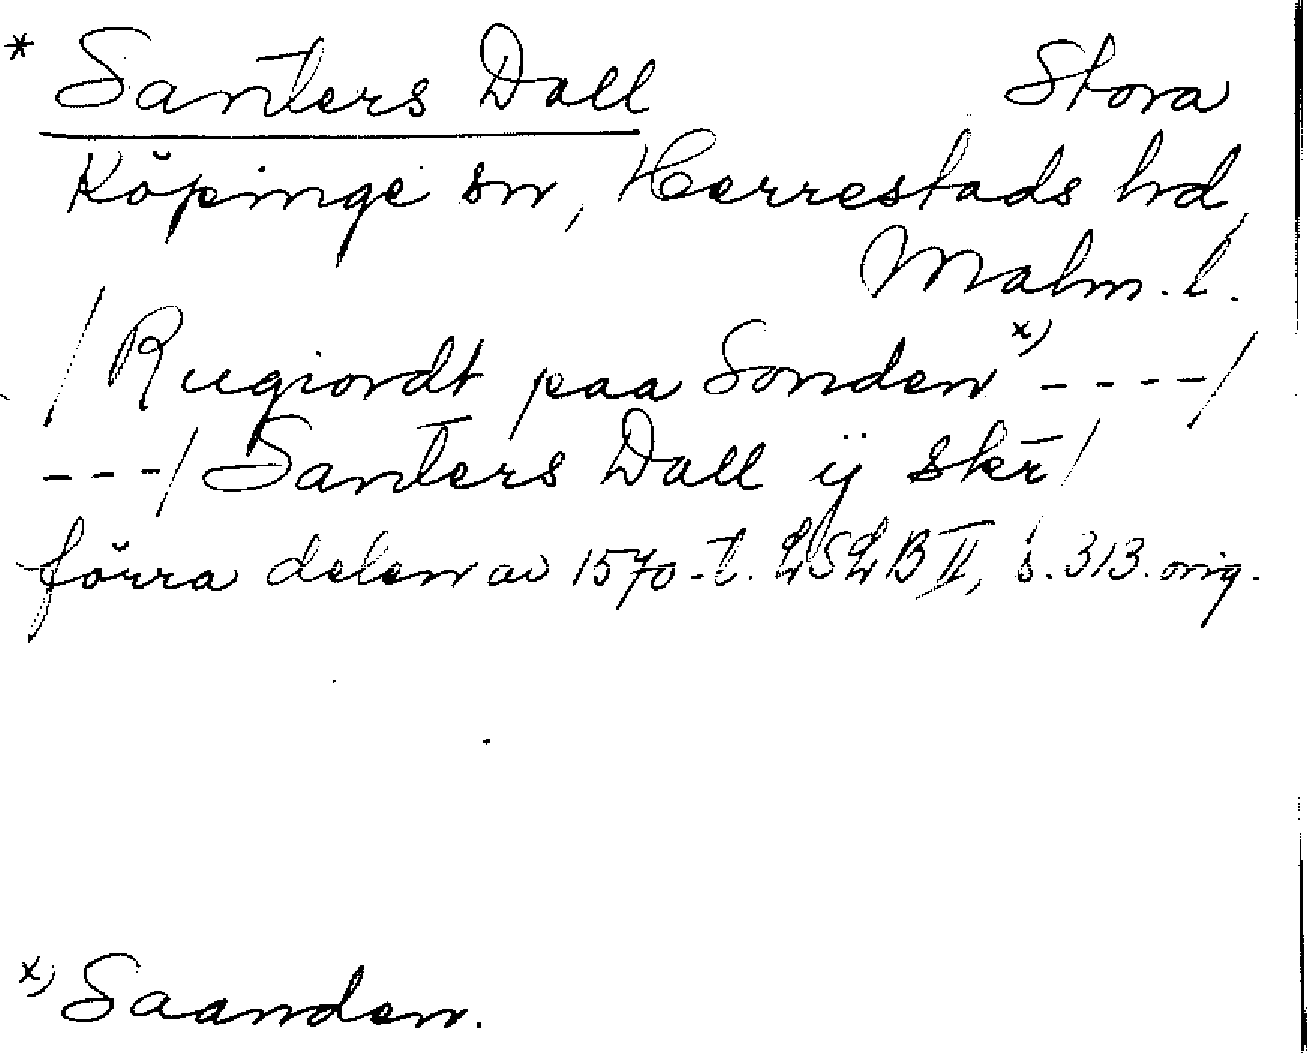 * Santers Dall Stora
Köpinge sn, Herrestads hd,
Malm. l.
/ Rugiordt paa Sonden x) ---- /
--- / Santers Dall ij skr /
förra delen av 1570-t. LSLB II, s. 313. orig.
x) Saanden.